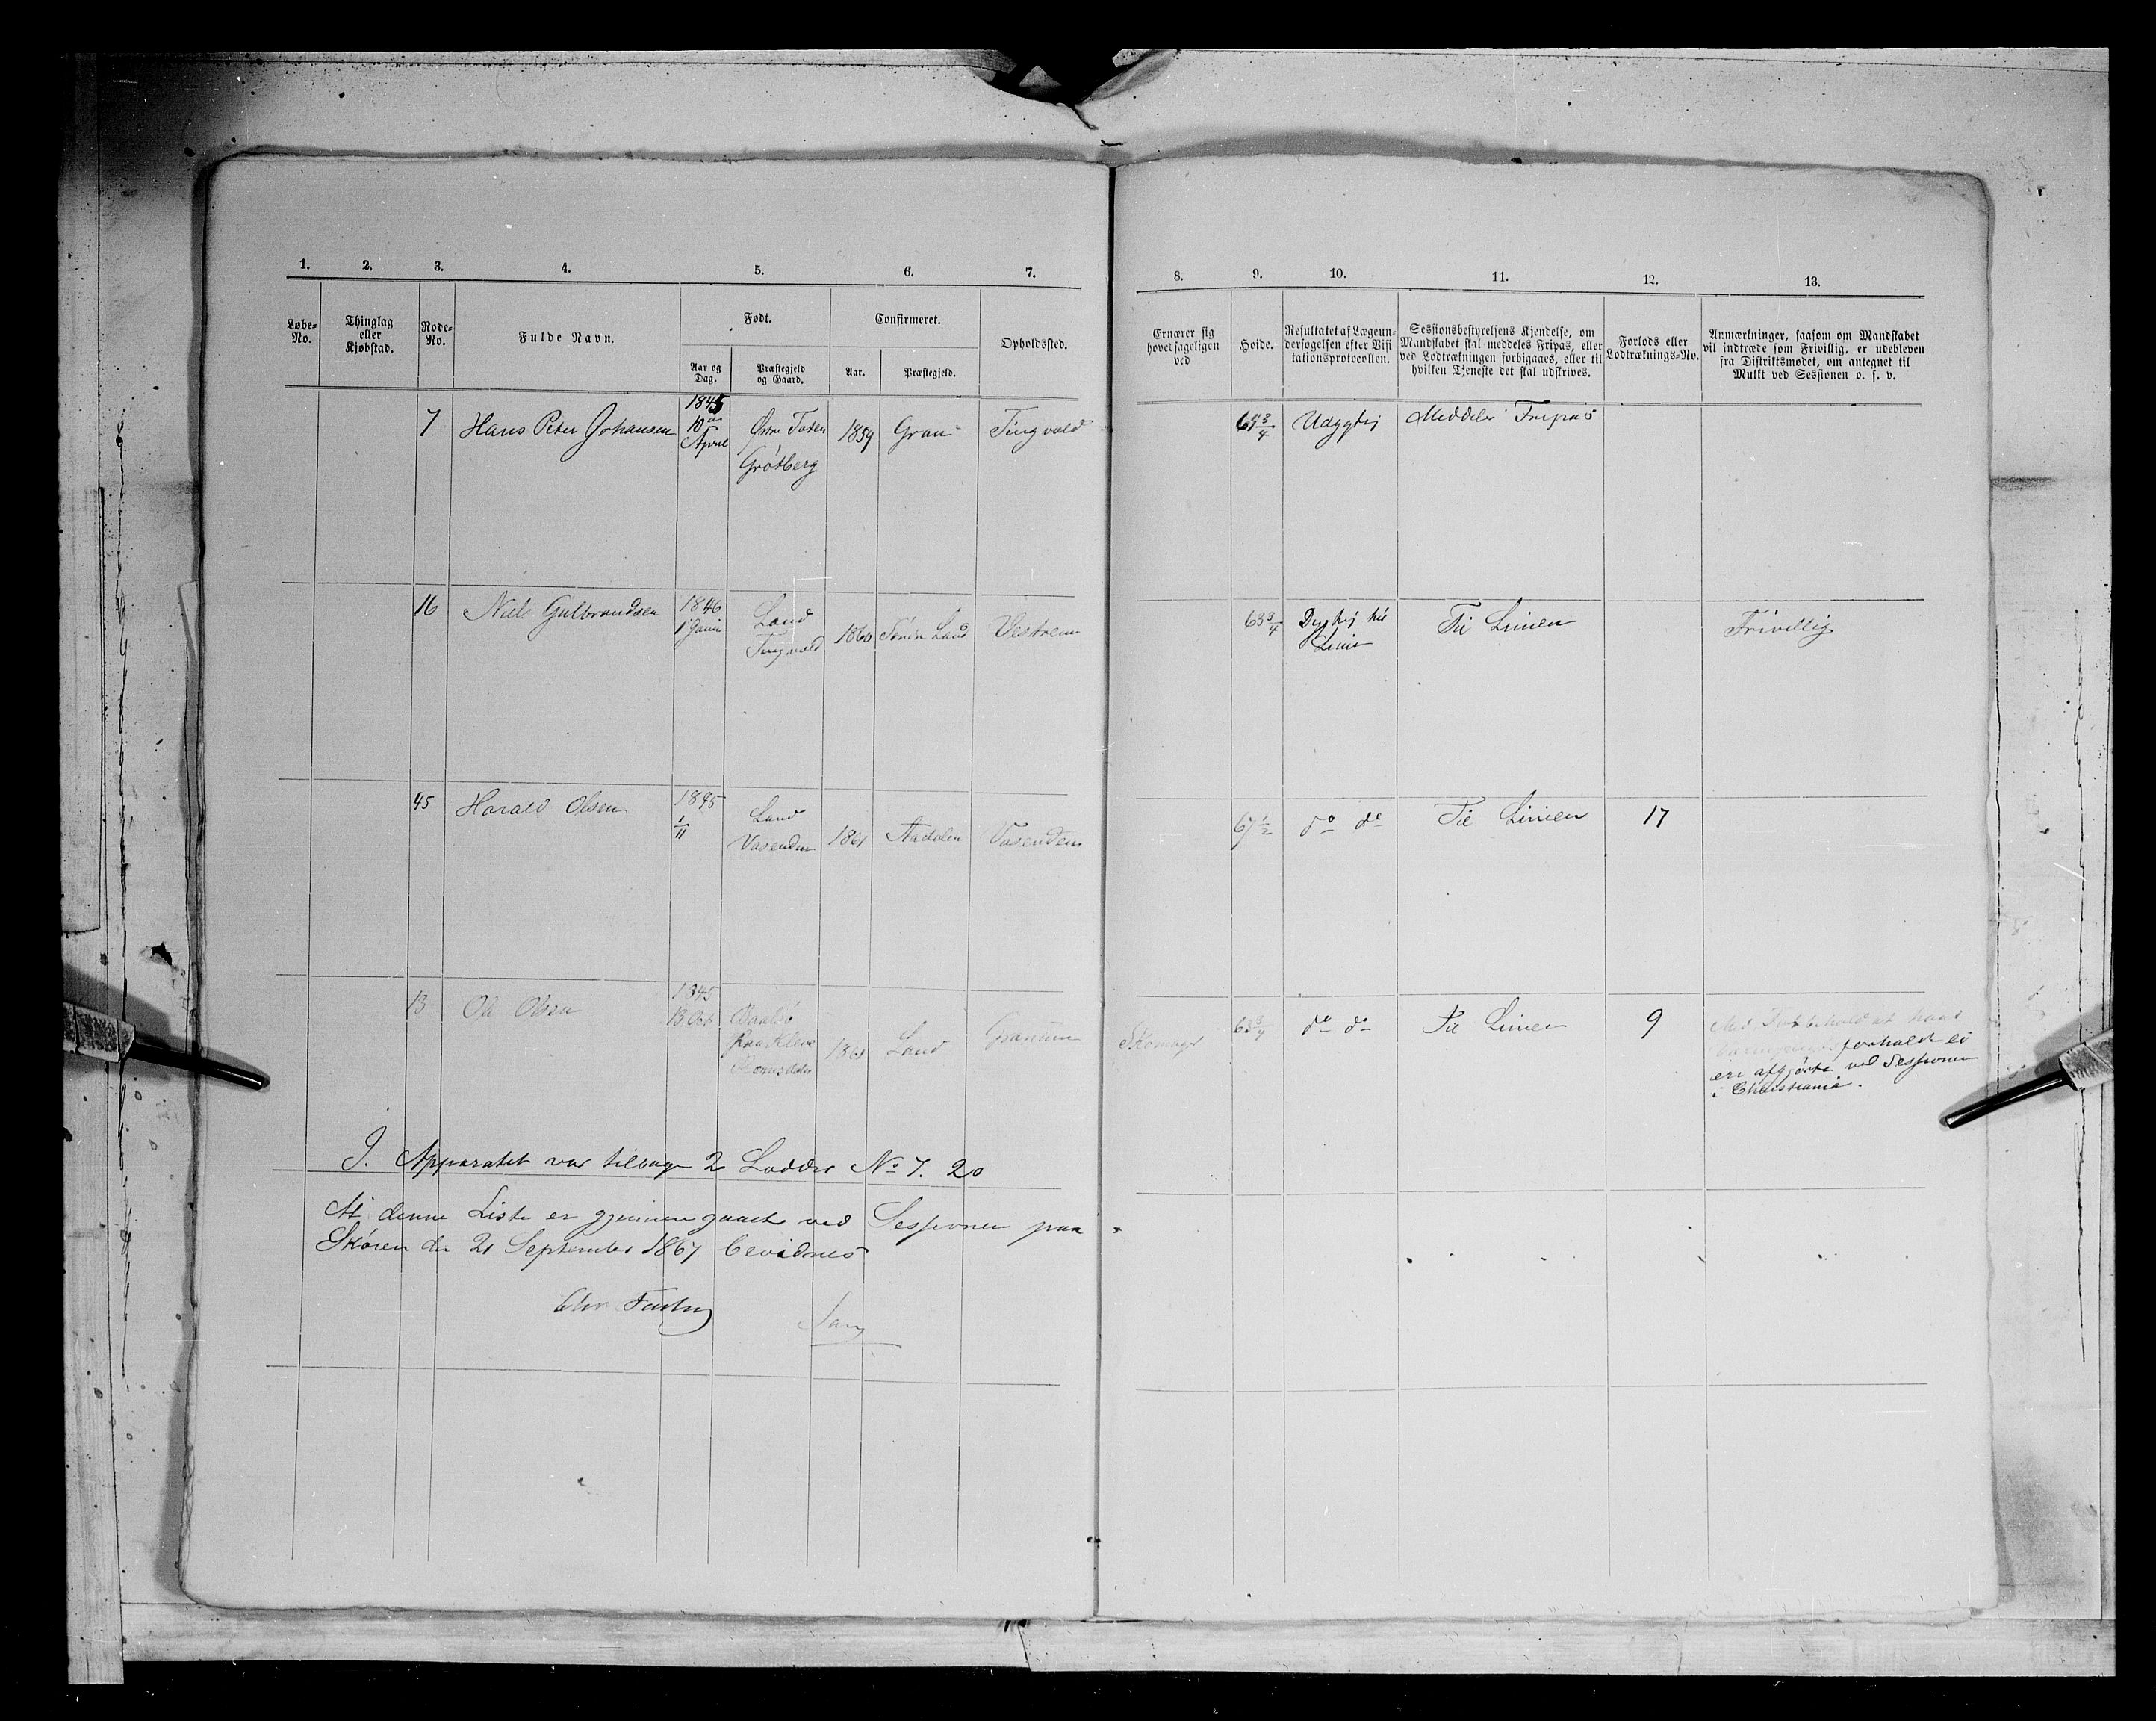 1. 2. 3. 4. 5. 6. 7.
Løbe-No. Thinglag eller Kjøbstad. Rode-No. Fulde Navn. Født. Confirmeret. Opholdssted.
Aar og Dag. Præstegjeld og Gaard. Aar. Præstegjeld.
7 Hans Peter Johansen 1845 10de April Østre Toten Grøtberg 1859 Gran Tingvold
16 Niels Gulbrandsen 1846 1 Land Tingvold 1860 Søndre Land Vestrum
45 Harald Olsen 1845 1/11 Land Vasenden 1861 Aadalen Vasenden
13 Ole Olsen 1845 13 Oct 1861 Land Granum
I Apparatet var tilbage 2 Lodder No 7. 20
At denne Liste er gjennemgaaet ved Sessionen paa
Skøien den 21 September 1867 bevidnes
Chr
8. 9. 10. 11. 12. 13.
Ernærer sig hovedsageligen ved
Høide.
Resultatet af Lægeun-
dersøgelsen efter Visi
tationsprotocollen.
Sessionsbestyrelsens Kjendelse, om
Mandskabet skal meddeles Fripas, eller
ved Lodtrækningen forbigaaes, eller til
hvilken Tjeneste det skal udskrives.
Forlods eller
Lodtræknings-No.
Anmærkninger, saasom om Mandskabet
vil indtræde som Frivillig, er udebleven
fra Distriktsmødet, om antegnet til
Mulkt ved Sessionen o. s. v.
64 3/4 Udygtig Meddeles Fripas
63 3/4 Dygtig til Linien Til Linien Frivillig
67 1/2 do do Til Linien 17
Skomager 63 3/4 do do Til Linien 9
Med Forbehold at hans
forhold ei
er afgjørte ved Sessionen
i Christiania.